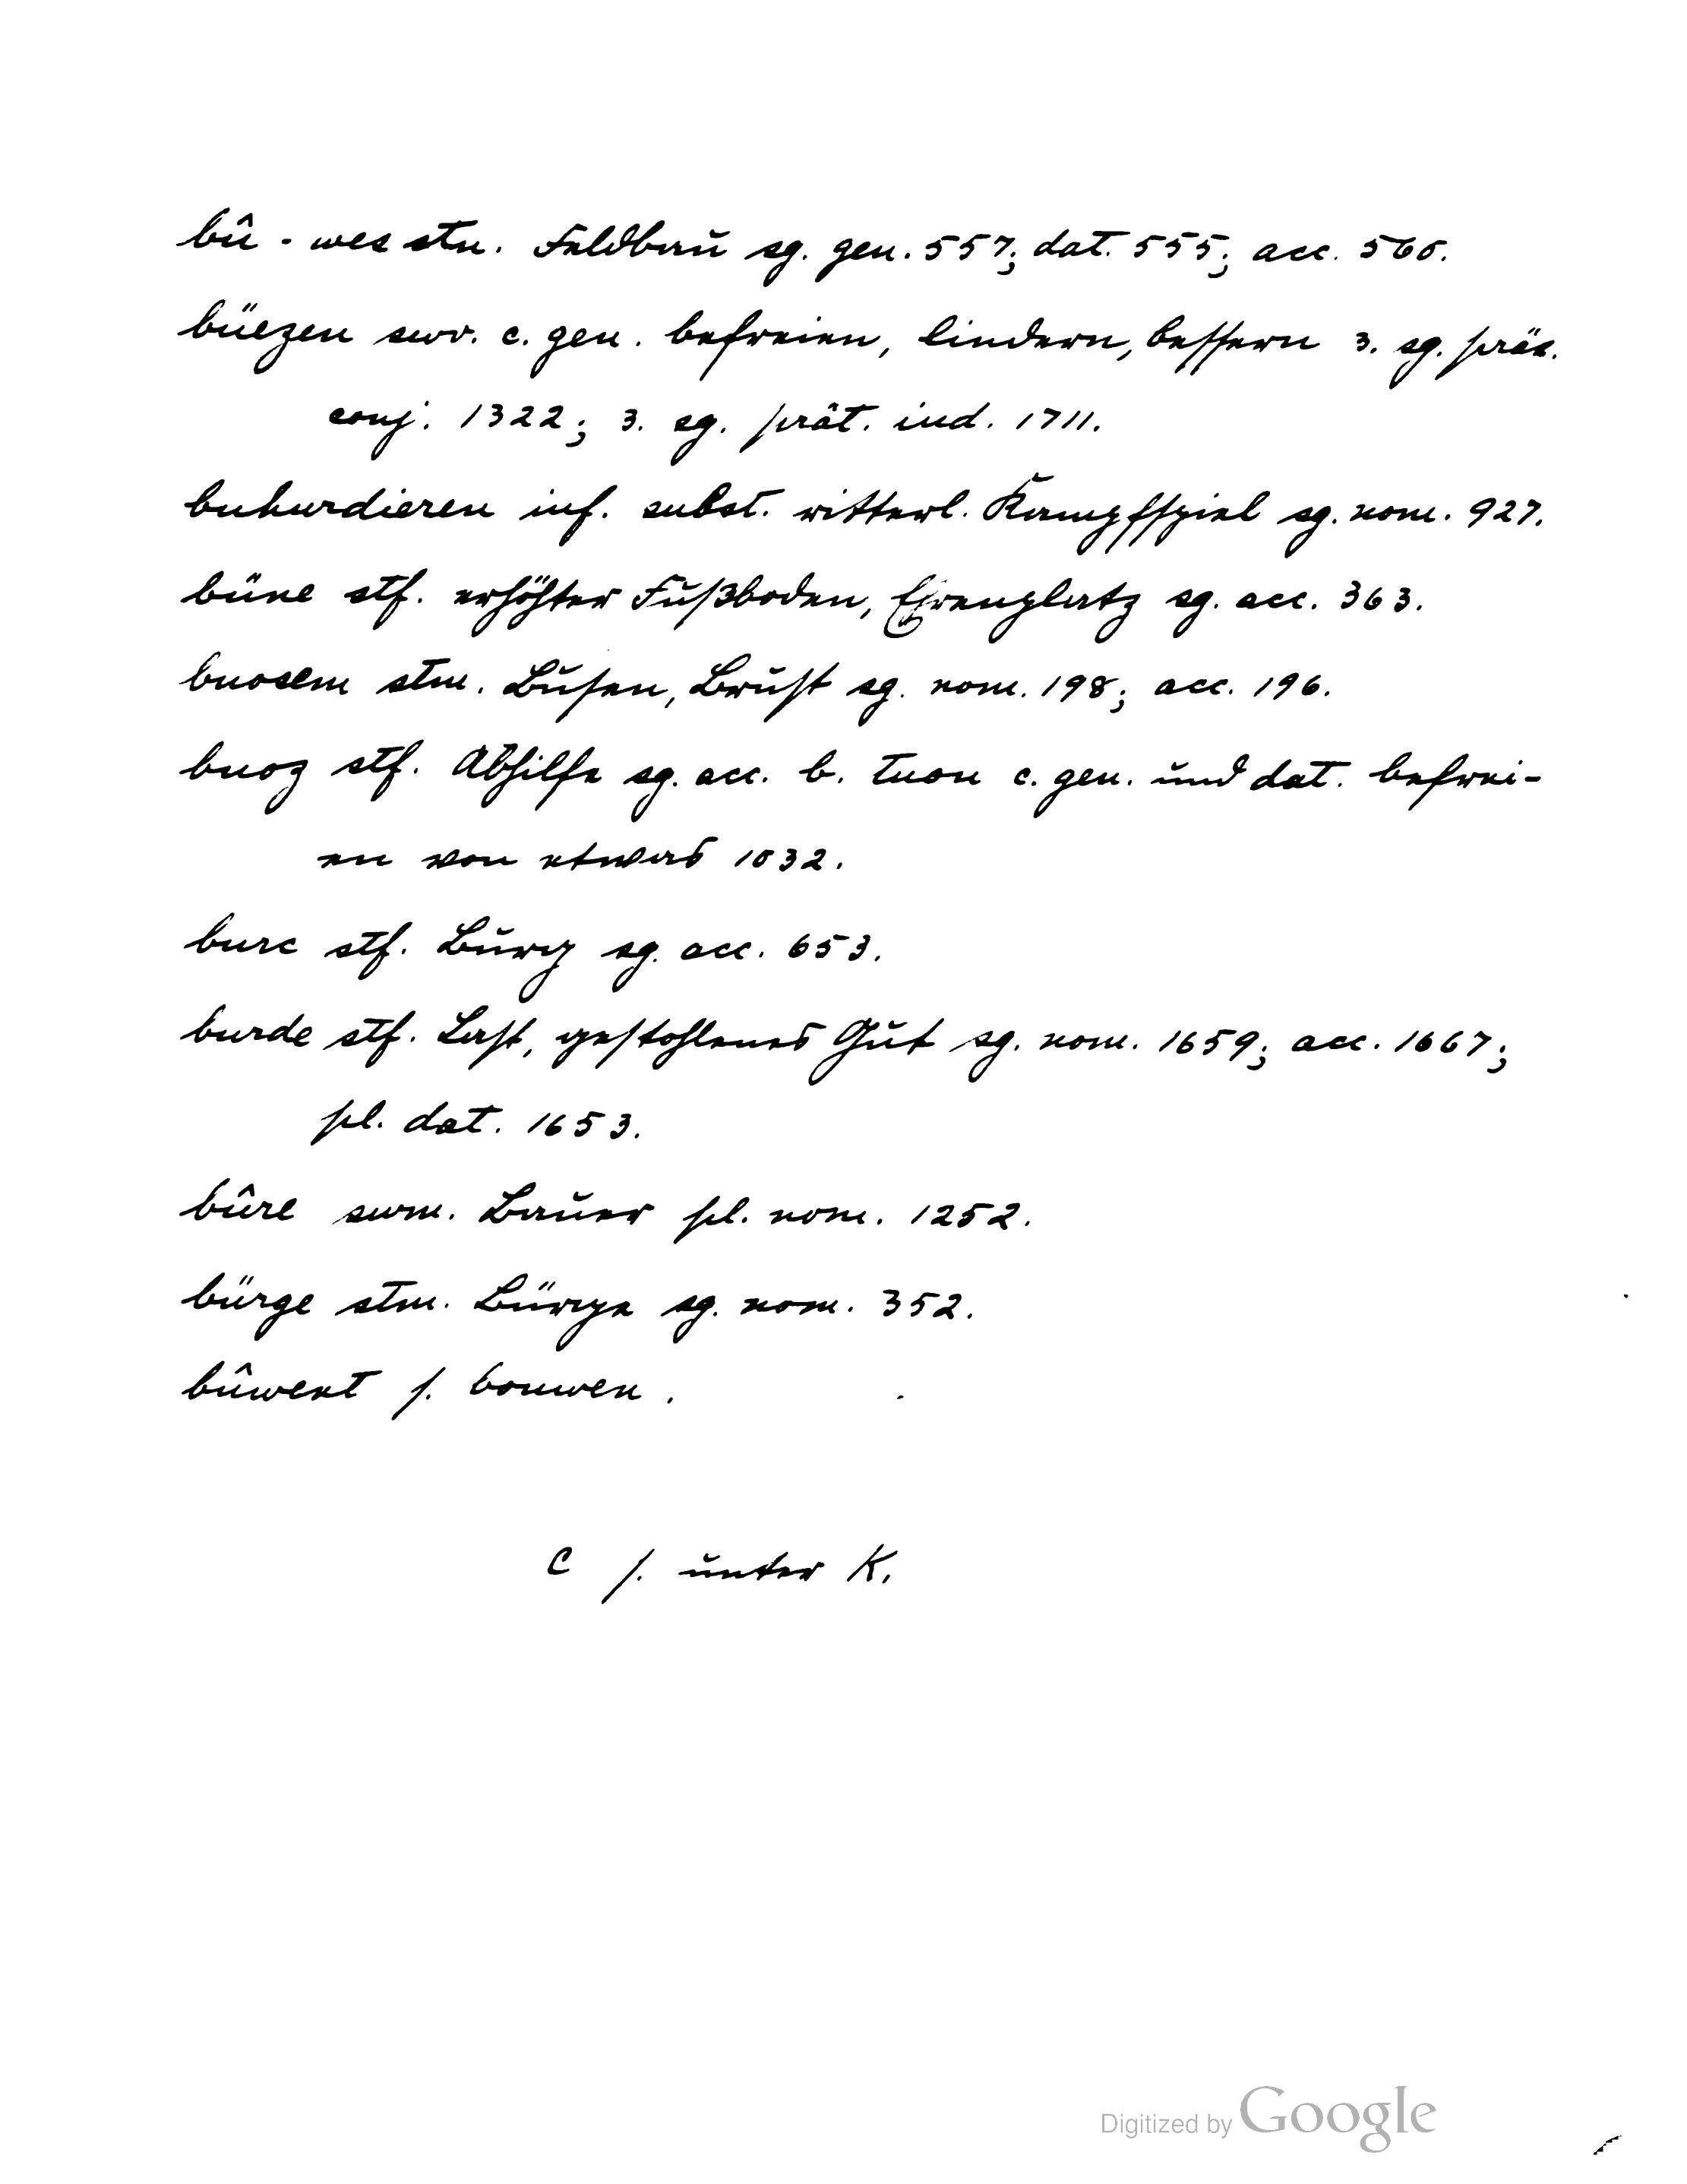 bû - wes stn. Feldbau sg. gen. 557; dat. 555; acc. 560.
büezen swv. c. gen. befreien, lindern, bessern 3. sg. präs.
conj. 1322; 3. sg. prät. ind. 1711.
buhurdieren inf. subst. ritterl. Kampfspiel sg. nom. 927.
büne stf. erhöhter Fußboden, Ehrenplatz sg. acc. 363.
buosem stm. Busen, Brust sg. nom. 198; acc. 196.
buoz stf. Abhilfe sg. acc. b. tuon c. gen. und dat. befrei-
en von etwas 1032.
burc stf. Burg sg. acc. 653.
burde stf. Last, gestohlenes Gut sg. nom. 1659; acc. 1667;
pl. dat. 1653.
bûre swm. Bauer pl. nom. 1252.
bürge stm. Bürge sg. nom. 352.
bûwent s. bouwen.
C s. unter K.
Digitized by Google